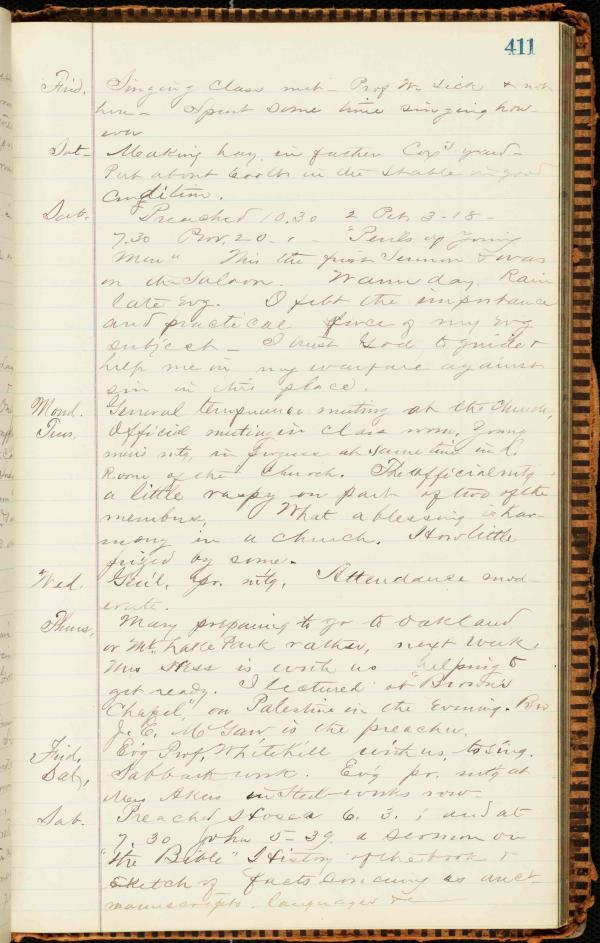 411
Frid. Singing Class met - Prof W. sick & not
here - Spent some time singing how-
ever
Sat - Making hay in father Cox's yard -
Put about 600 lbs in the stable in good
Condition.
Sab. Preached 10.30 2 Pet 3-18 -
7.30 Prov. 20-1 - "Perils of Young
Men" This the first Sermon I was
on the Saloon. Warm day. Rain
late Evg. I felt the importance
and practical force of my Evg
subject - I trust God to guide &
help me in my warfare against
sin in this place.
Mond. General temperance meeting at the Church.
Tues. Official meeting in Class room. Young
men's mtg. in progress at same time in L.
Room of the Church. The official mtg
a little raspy on part of two of the
members. What a blessing is har-
mony in a church. How little
prized by some.
Wed. Gen'l. pr. mtg. Attendance mod-
erate.
Thurs. Mary preparing to go to Oakland
or Mt. Lake Park rather, next week.
Mrs is with us helping to
get ready. I lectured at "Brown's
Chapel" on Palestine in the Evening. Bro
J. E. McGaw is the preacher.
Frid. Ev'g Prof. Whitehill with us, to sing.
Sat. Sabbath work. Ev'g pr. mtg at
Mrs Akers in Steel-works row
Sab. Preached Hosea 6. 3. ; and at
7.30 John 5-39. a sermon on
"The Bible" History of the book &
Sketch of facts concerning as anct-
manuscripts. languages &c